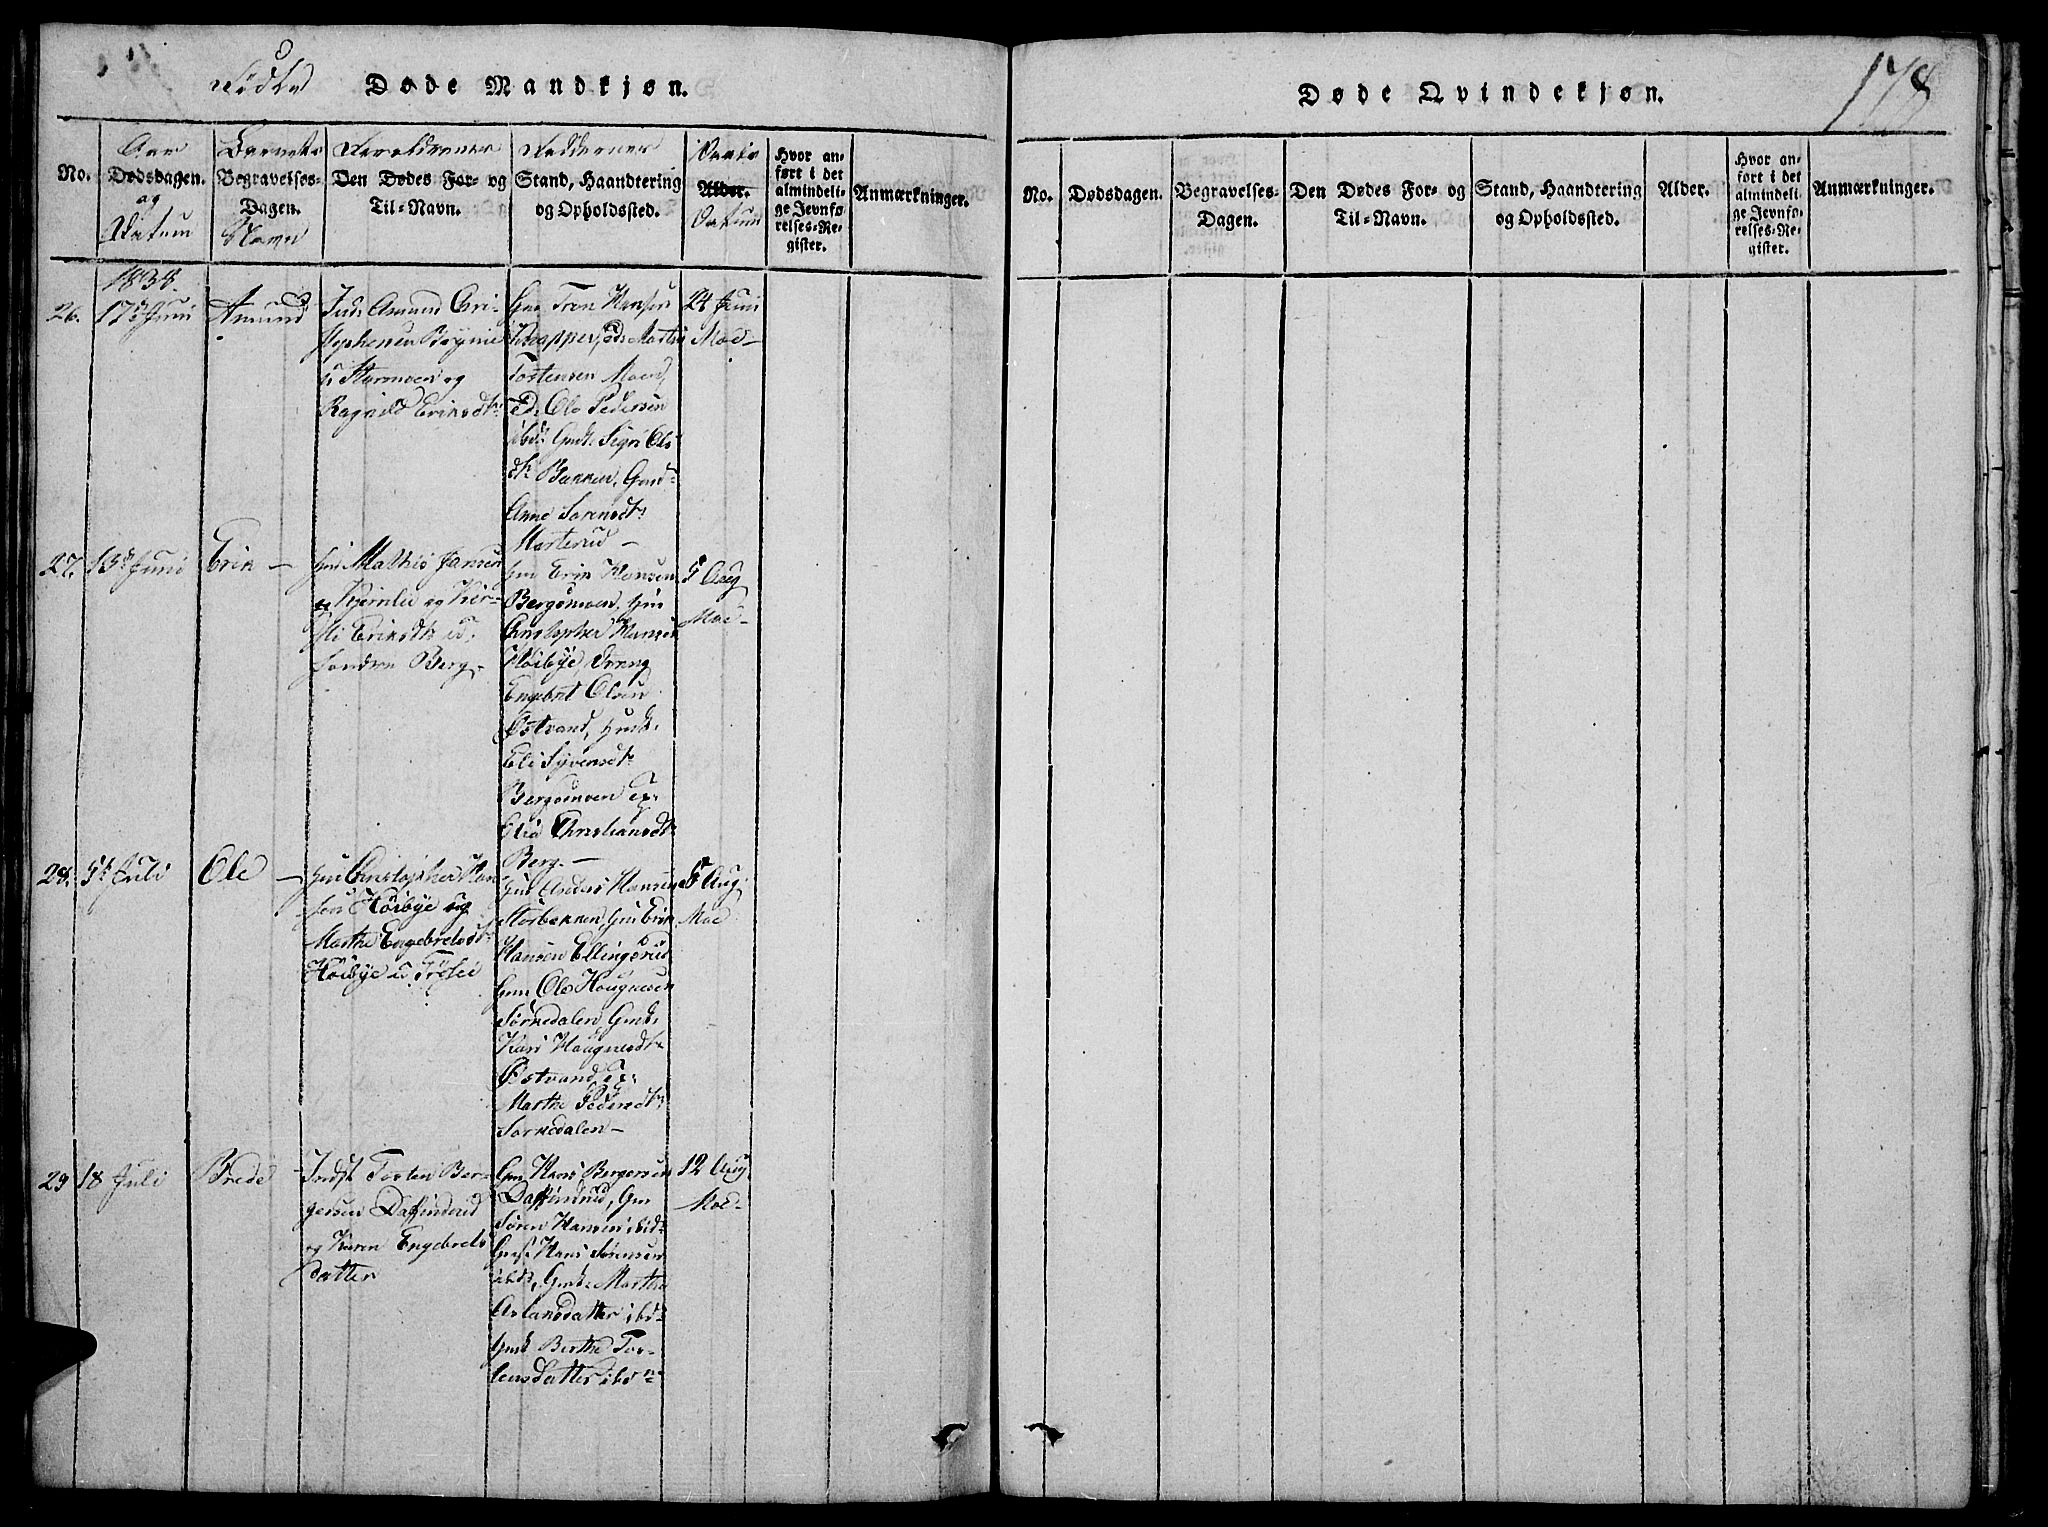 178
Fødte Døde Mandkjøn.
No.
Aar
Dødsdagen.
og
Datum
Barnets
Begravelses-
Dagen.
Navn
Forældrenes
Den Dødes For- og
Til-Navn.
Faddernes
Stand, Haandtering
og Opholdssted.
Alder.
Datum
Hvor an-
ført i det
almindeli-
ge Jevnfø-
relses-Re-
gister.
Anmærkninger.
1838.
26.
17de Juni
Amund
Inds. Amund Chri-
stophersen Bognie
Stormoen og
Ragnild Eriksdtr
Gm Hansen
Knapper, Martin
Tostensen Moen,
Ole Pedersen
ibd. Gmk. Sigri Ols
dtr Bakken, Gmk
Anne Sørensdtr
24 Juni
Moe-
27.
13de Juni
Erik –
Gm Mathis Jansen
Kjernlie og Kir-
sti Eriksdtr
Søndre Berg.
Gm Erik Hansen
Bergsmoen, Gm
Christopher Hansen
Høibye Dreng
Engebret Olsen
Østvand, Gmk.
Eli Syversdtr
Bergsmoen
Christiansdtr
Berg. –
5 Aug
Moe-
28.
5te Juli
Ole –
Gm Christopher Han-
sen Høibye og
Marthe Engebretsdtr
Høibye
Gm Anders Hansen
Storbekken, Gm Erik
Hansen Ellingsrud
Gm Ole Haugnesen
Sørkedalen, Gmk.
Kari Haugnesdtr
Østvand,
Marthe Pedersdtr
Sørkedalen –
5 Aug
Moe
29
18 Juli
Brede –
Indst Tosten Ber-
gersen Daffinrud
og Karen Engebrets
datter
Gm Hans Bergersen
Daffinrud, Gm
Søren Hansen ibid
Hans Sørensen
ibd, Gmk. Marthe
Aslansdatter ibd
Gmk Berthe Tos-
tensdatter ibd
12 Aug
Moe-
Døde Qvindekjøn.
No.
Dødsdagen.
Begravelses-
Dagen.
Den Dødes For- og
Til-Navn.
Stand, Haandtering
og Opholdssted.
Alder.
Hvor an-
ført i det
almindeli-
ge Jevnfø-
relses-Re-
gister.
Anmærkninger.